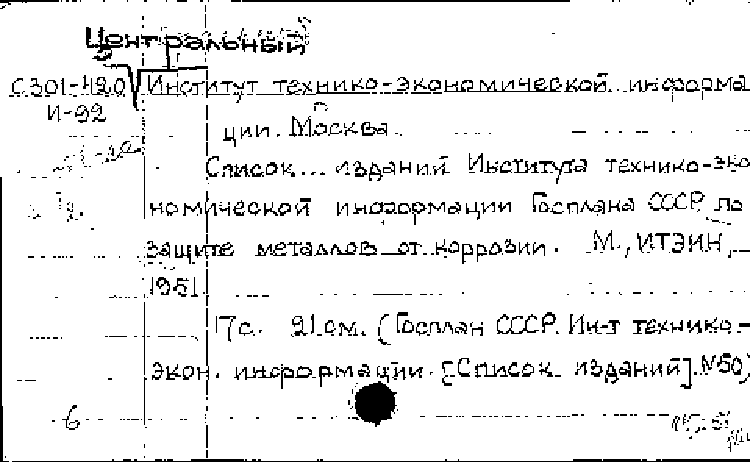 Центральный
С301-420 Институт технико-экономической информа
И-92
ции. Москва.
Список... изданий Института технико-эко
номической информации Госплана СССР по
защите металлов от коррозии. М., ИТЭИН,
1951.
17с. 21.см. (Госплан СССР. Ин-т технико-
экон. информации. [Список изданий]. №50)
6